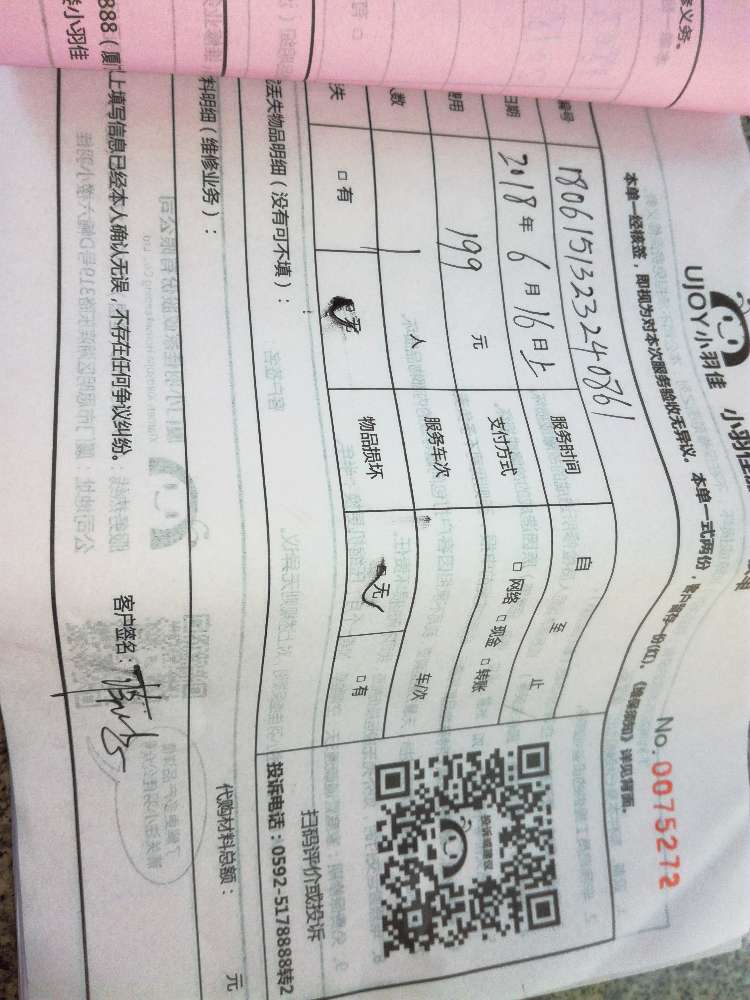 修义务。
UJOY小羽佳
No.0075272
本单一经核签，即视为对本次服务验收无异议。本单一式两份，
详见背面。
编号 1806151323240861
日期 2018年6月16日上 服务时间 自 至 止
费用 199 元 支付方式 □网络 □现金 □转账
人数 1 人 服务车次 车次
失 □有 无 物品损坏 无 □有
丢失物品明细（没有可不填）：
扫码评价或投诉
投诉电话：0592-5178888转2
料明细（维修业务）：
代购材料总额： 元
上填写信息已经本人确认无误，不存在任何争议纠纷。 客户签名：
888（厦
小羽佳